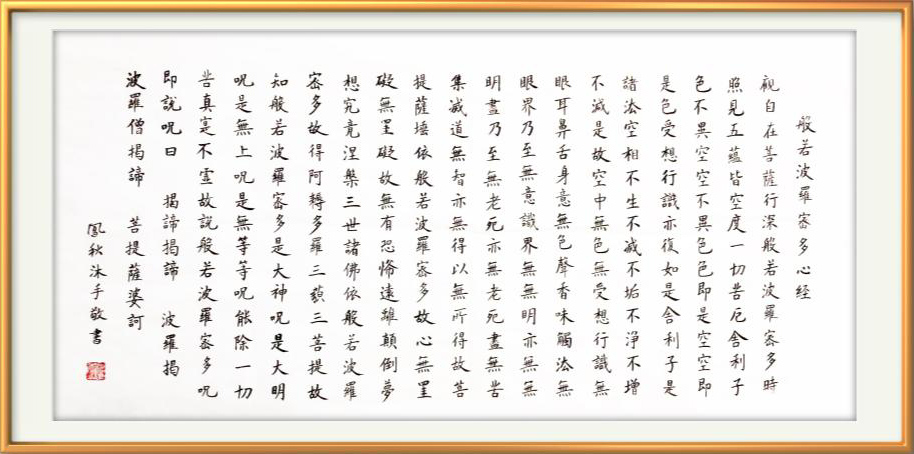 般若波羅密多心經
觀自在菩薩行深般若波羅密多時
照見五蘊皆空度一切苦厄舍利子
色不異空空不異色色即是空空即
是色受想行識亦復如是舍利子是
諸法空相不生不滅不垢不淨不增
不減是故空中無色無受想行識無
眼耳鼻舌身意無色聲香味觸法無
眼界乃至無意識界無無明亦無無
明盡乃至無老死亦無老死盡無苦
集滅道無智亦無得以無所得故菩
提薩埵依般若波羅密多故心無罣
礙無罣礙故無有恐怖遠離顛倒夢
想究竟涅槃三世諸佛依般若波羅
密多故得阿耨多羅三藐三菩提故
知般若波羅密多是大神呪是大明
呪是無上呪是無等等呪能除一切
苦真實不虛故說般若波羅密多呪
即說呪曰 揭諦揭諦 波羅揭
波羅僧揭諦 菩提薩婆訶
鳳秋沐手敬書